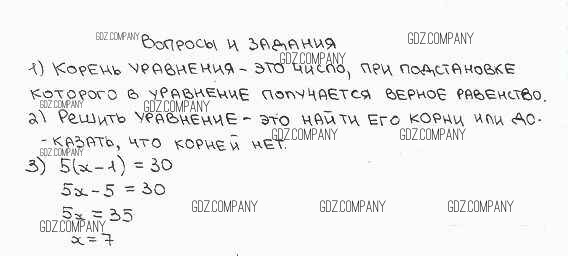 GDZ.COMPANY
Вопросы и задания
GDZ.COMPANY
GDZ.COMPANY
1) Корень уравнения - это число, при подстановке
которого в уравнение получается верное равенство.
GDZ.COMPANY GDZ.COMPANY
2) Решить уравнение - это найти его корни или до-
GDZ.COMPANY GDZ.COMPANY
-казать, что корней нет.
GDZ.COMPANY
3) 5(x-1) = 30
5x-5 = 30
5x = 35
GDZ.COMPANY GDZ.COMPANY GDZ.COMPANY
GDZ.COMPANY
x=7